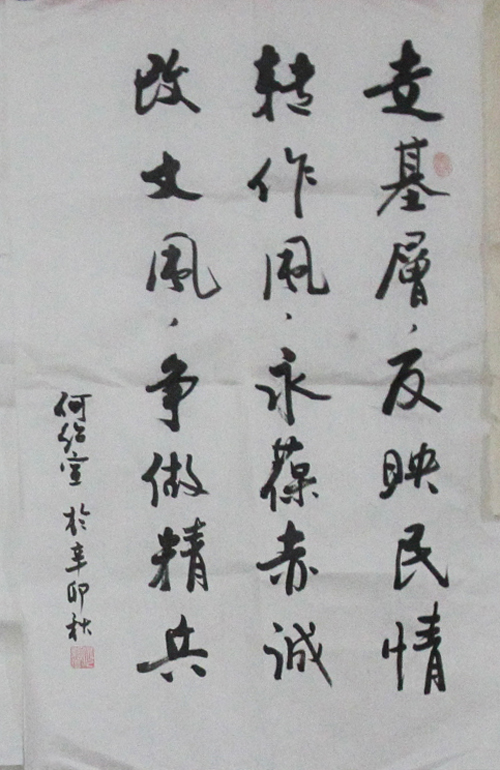 走基層，反映民情
转作风，永葆赤诚
改文風，争做精兵
何绍宣 於辛卯秋